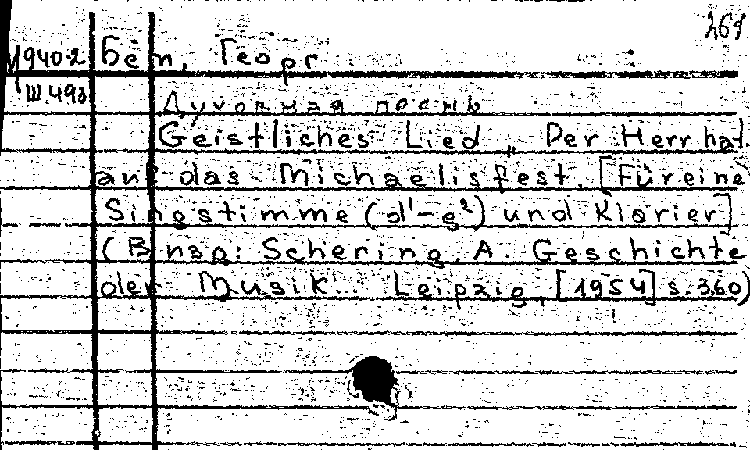 261
19402 Бем, Георг
Ш.493 Духовная песнь
Geistliches Lied „Der Herr hat
auf das Michaelisfest. [Für eine
Singstimme (d'-g²) und Klavier]
(В изд: Schering, A. Geschichte
der Musik... Leipzig, [1954] s. 360)